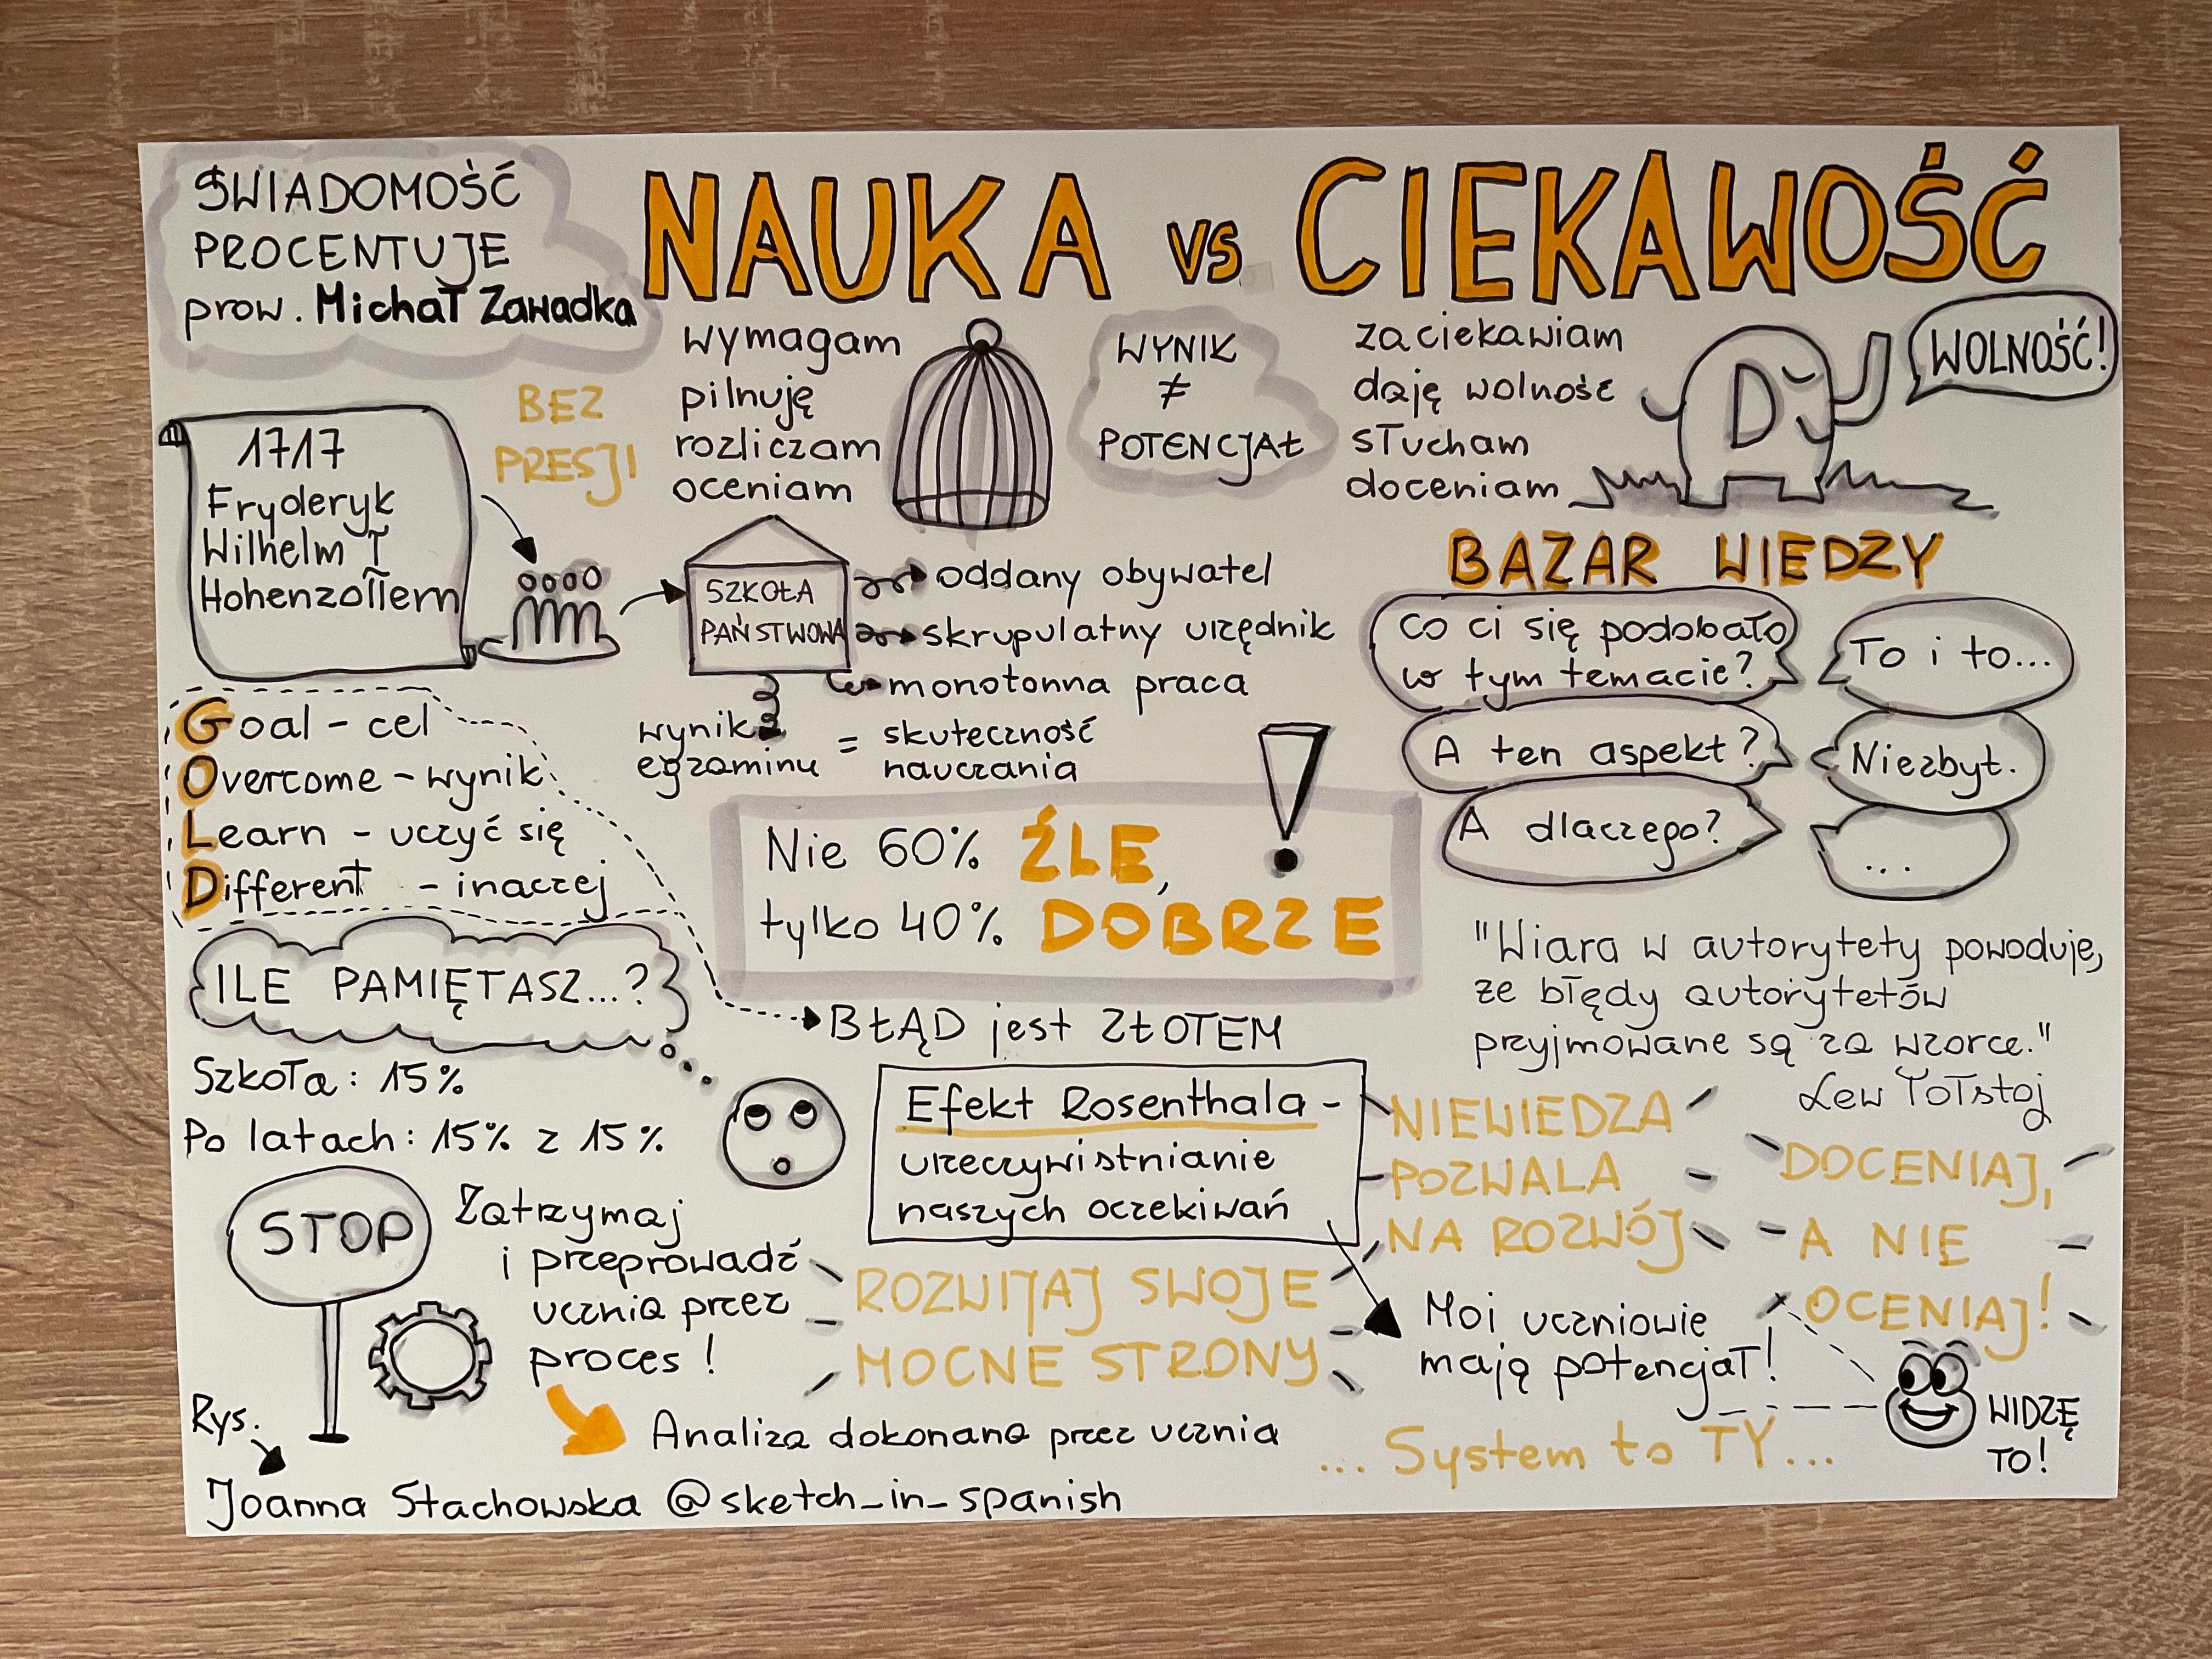 ŚWIADOMOŚĆ
PROCENTUJE
prow. Michał Zawadka
NAUKA vs CIEKAWOŚĆ
wymagam
pilnuję
rozliczam
oceniam
WYNIK
≠
POTENCJAŁ
zaciekawiam
daję wolność
słucham
doceniam
WOLNOŚĆ!
BEZ
PRESJI
1717
Fryderyk
Wilhelm I
Hohenzollern
SZKOŁA
PAŃSTWOWA
oddany obywatel
skrupulatny urzędnik
monotonna praca
wynik
egzaminu
=
skuteczność
nauczania
BAZAR WIEDZY
Co ci się podobało
w tym temacie?
To i to...
A ten aspekt?
Niezbyt.
A dlaczego?
...
Goal - cel
Overcome - wynik
Learn - uczyć się
Different - inaczej
Nie 60% ŹLE,
tylko 40% DOBRZE
!
BŁĄD jest ZŁOTEM
"Wiara w autorytety powoduje,
że błędy autorytetów
przyjmowane są za wzorce."
Lew Tołstoj
ILE PAMIĘTASZ...?
Szkoła: 15%
Po latach: 15% z 15%
Efekt Rosenthala -
urzeczywistnianie
naszych oczekiwań
NIEWIEDZA
POZWALA
NA ROZWÓJ
DOCENIAJ,
A NIE
OCENIAJ!
STOP
Zatrzymaj
i przeprowadź
ucznia przez
proces!
ROZWIJAJ SWOJE
MOCNE STRONY
Moi uczniowie
mają potencjał!
WIDZĘ
TO!
Analiza dokonana przez ucznia
... System to TY...
Rys.
Joanna Stachowska @sketch_in_spanish